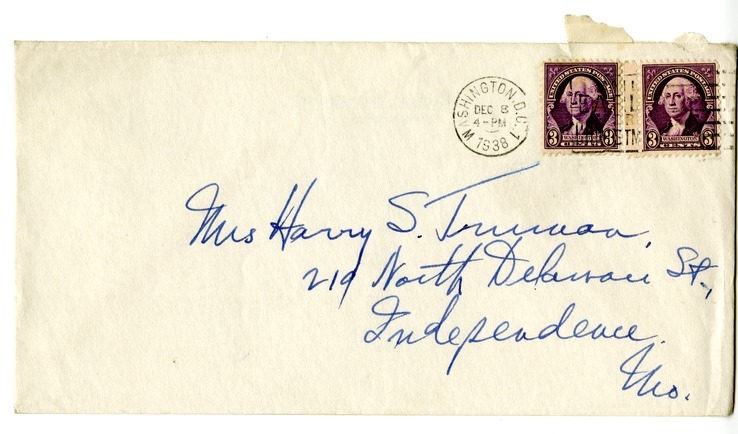 WASHINGTON, D.C. 1
DEC 8
4-PM
1938
UNITED STATES POSTAGE
3 WASHINGTON 3
CENTS
UNITED STATES POSTAGE
3 WASHINGTON 3
CENTS
Mrs Harry S. Truman,
219 North Delaware St.,
Independence
Mo.